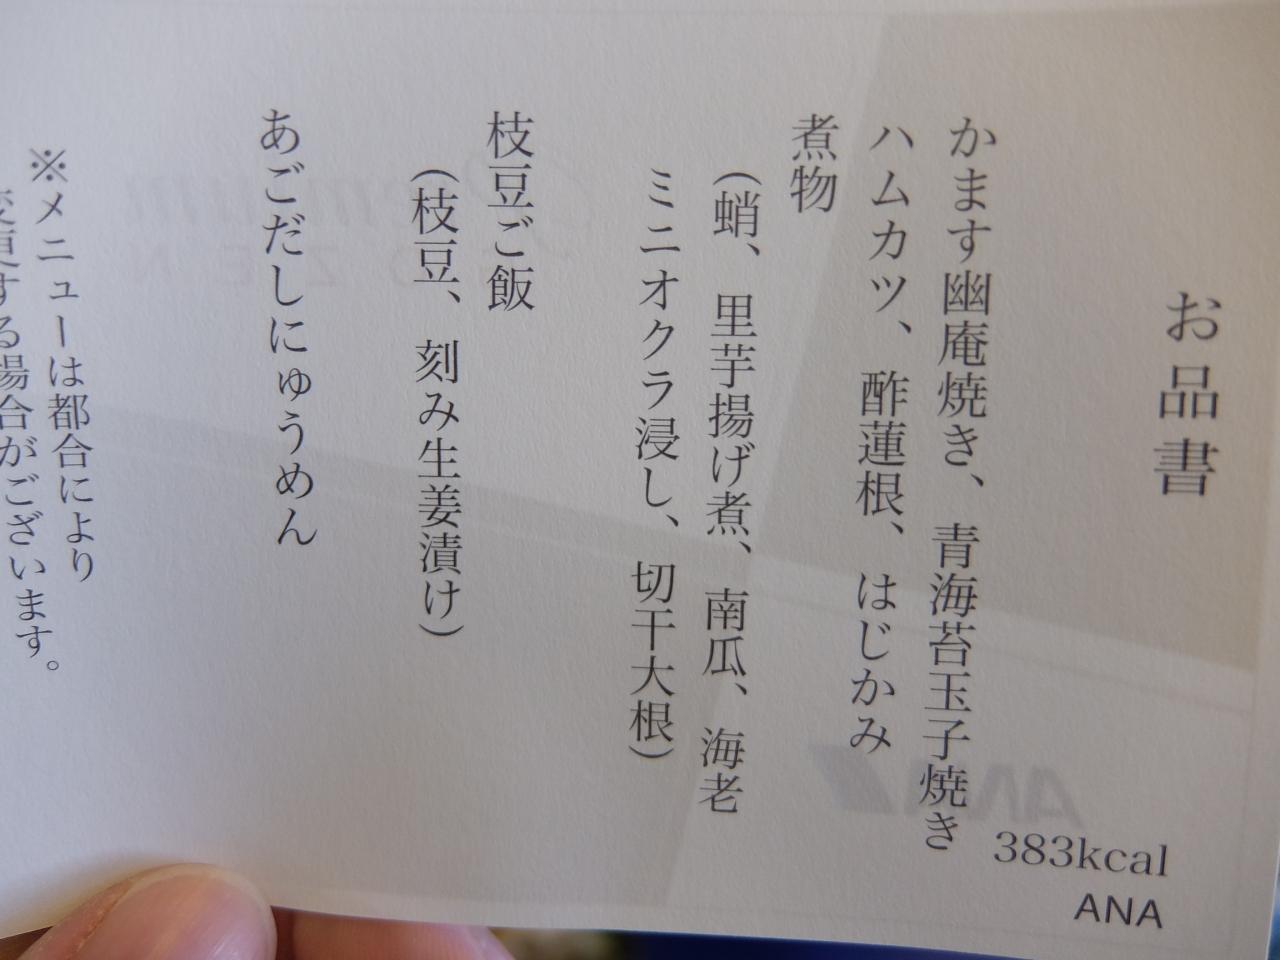 お品書
383kcal
ANA
かます幽庵焼き、青海苔玉子焼き
ハムカツ、酢蓮根、はじかみ
煮物
(蛸、里芋揚げ煮、南瓜、海老
ミニオクラ浸し、切干大根)
枝豆ご飯
(枝豆、刻み生姜漬け)
あごだしにゅうめん
※メニューは都合により
変更する場合がございます。